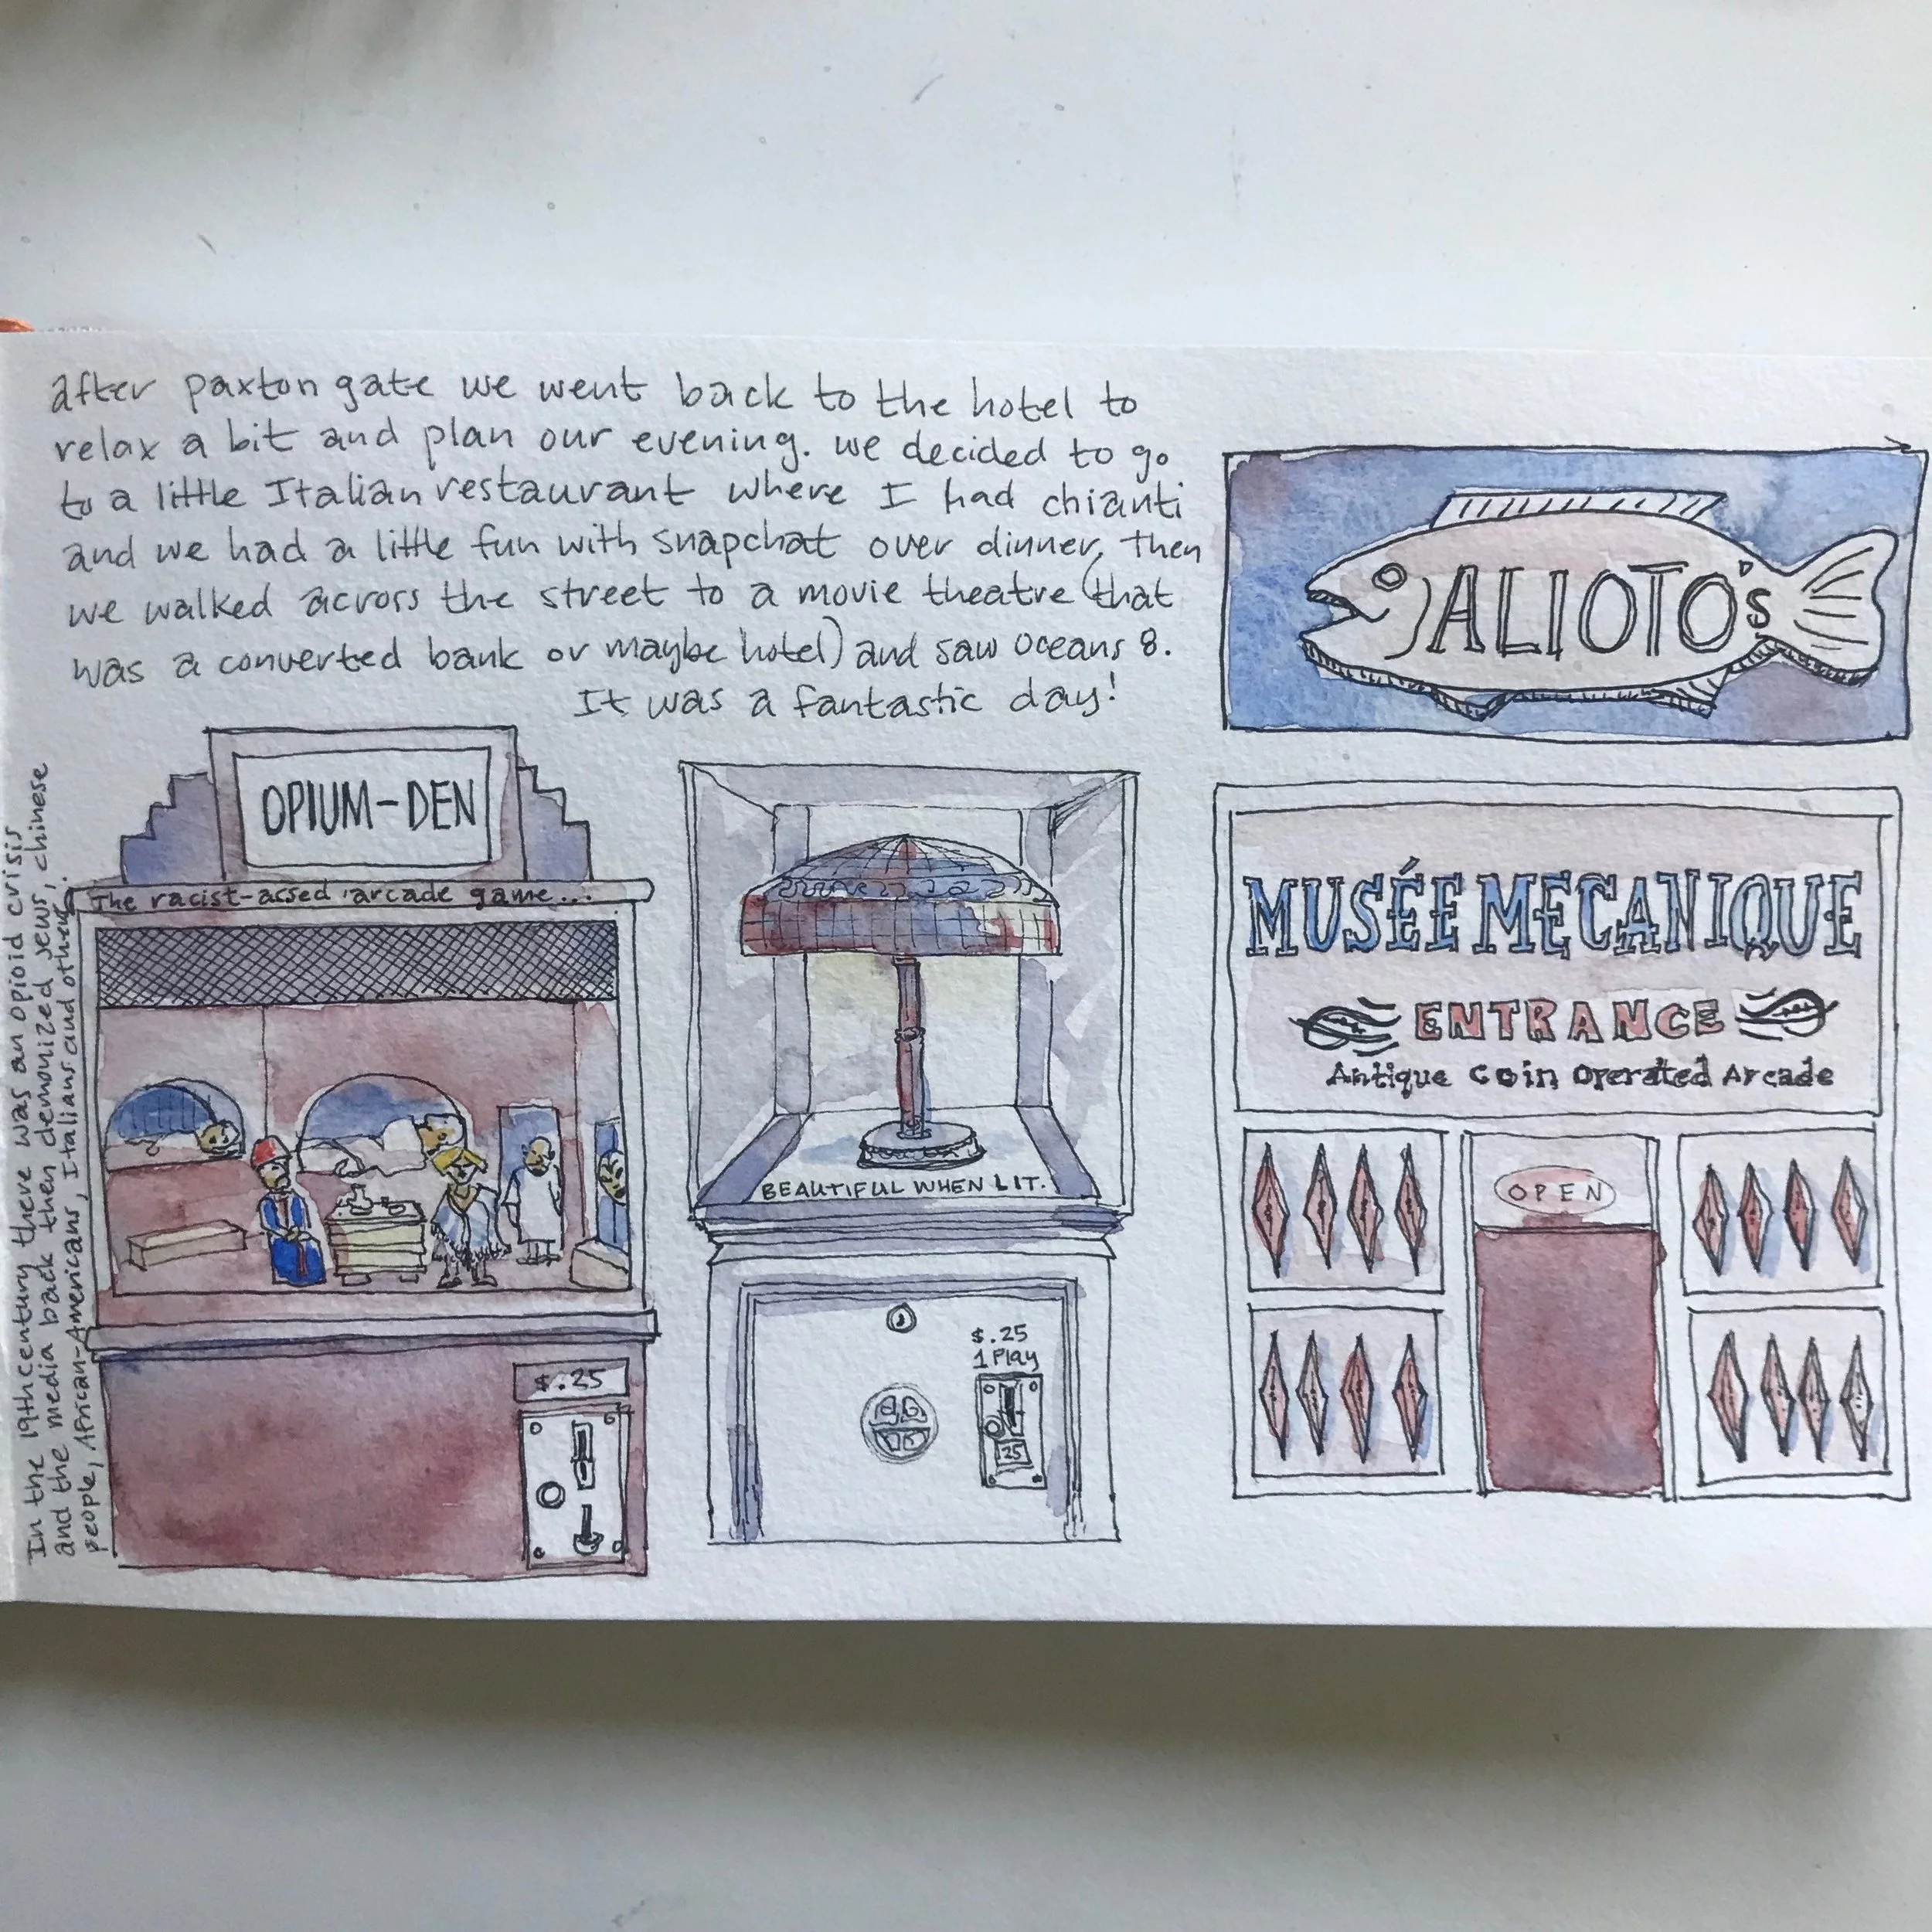 after paxton gate we went back to the hotel to
relax a bit and plan our evening. we decided to go
to a little Italian restaurant where I had chianti
and we had a little fun with snapchat over dinner, then
we walked across the street to a movie theatre (that
was a converted bank or maybe hotel) and saw oceans 8.
It was a fantastic day!
ALIOTO's
OPIUM-DEN
The racist-assed arcade game...
In the 19th century there was an opioid crisis
and the media back then demonized jews, chinese
people, African-Americans, Italians and others.
$.25
BEAUTIFUL WHEN LIT.
$.25
1 Play
25
MUSÉE MECANIQUE
ENTRANCE
Antique Coin Operated Arcade
OPEN